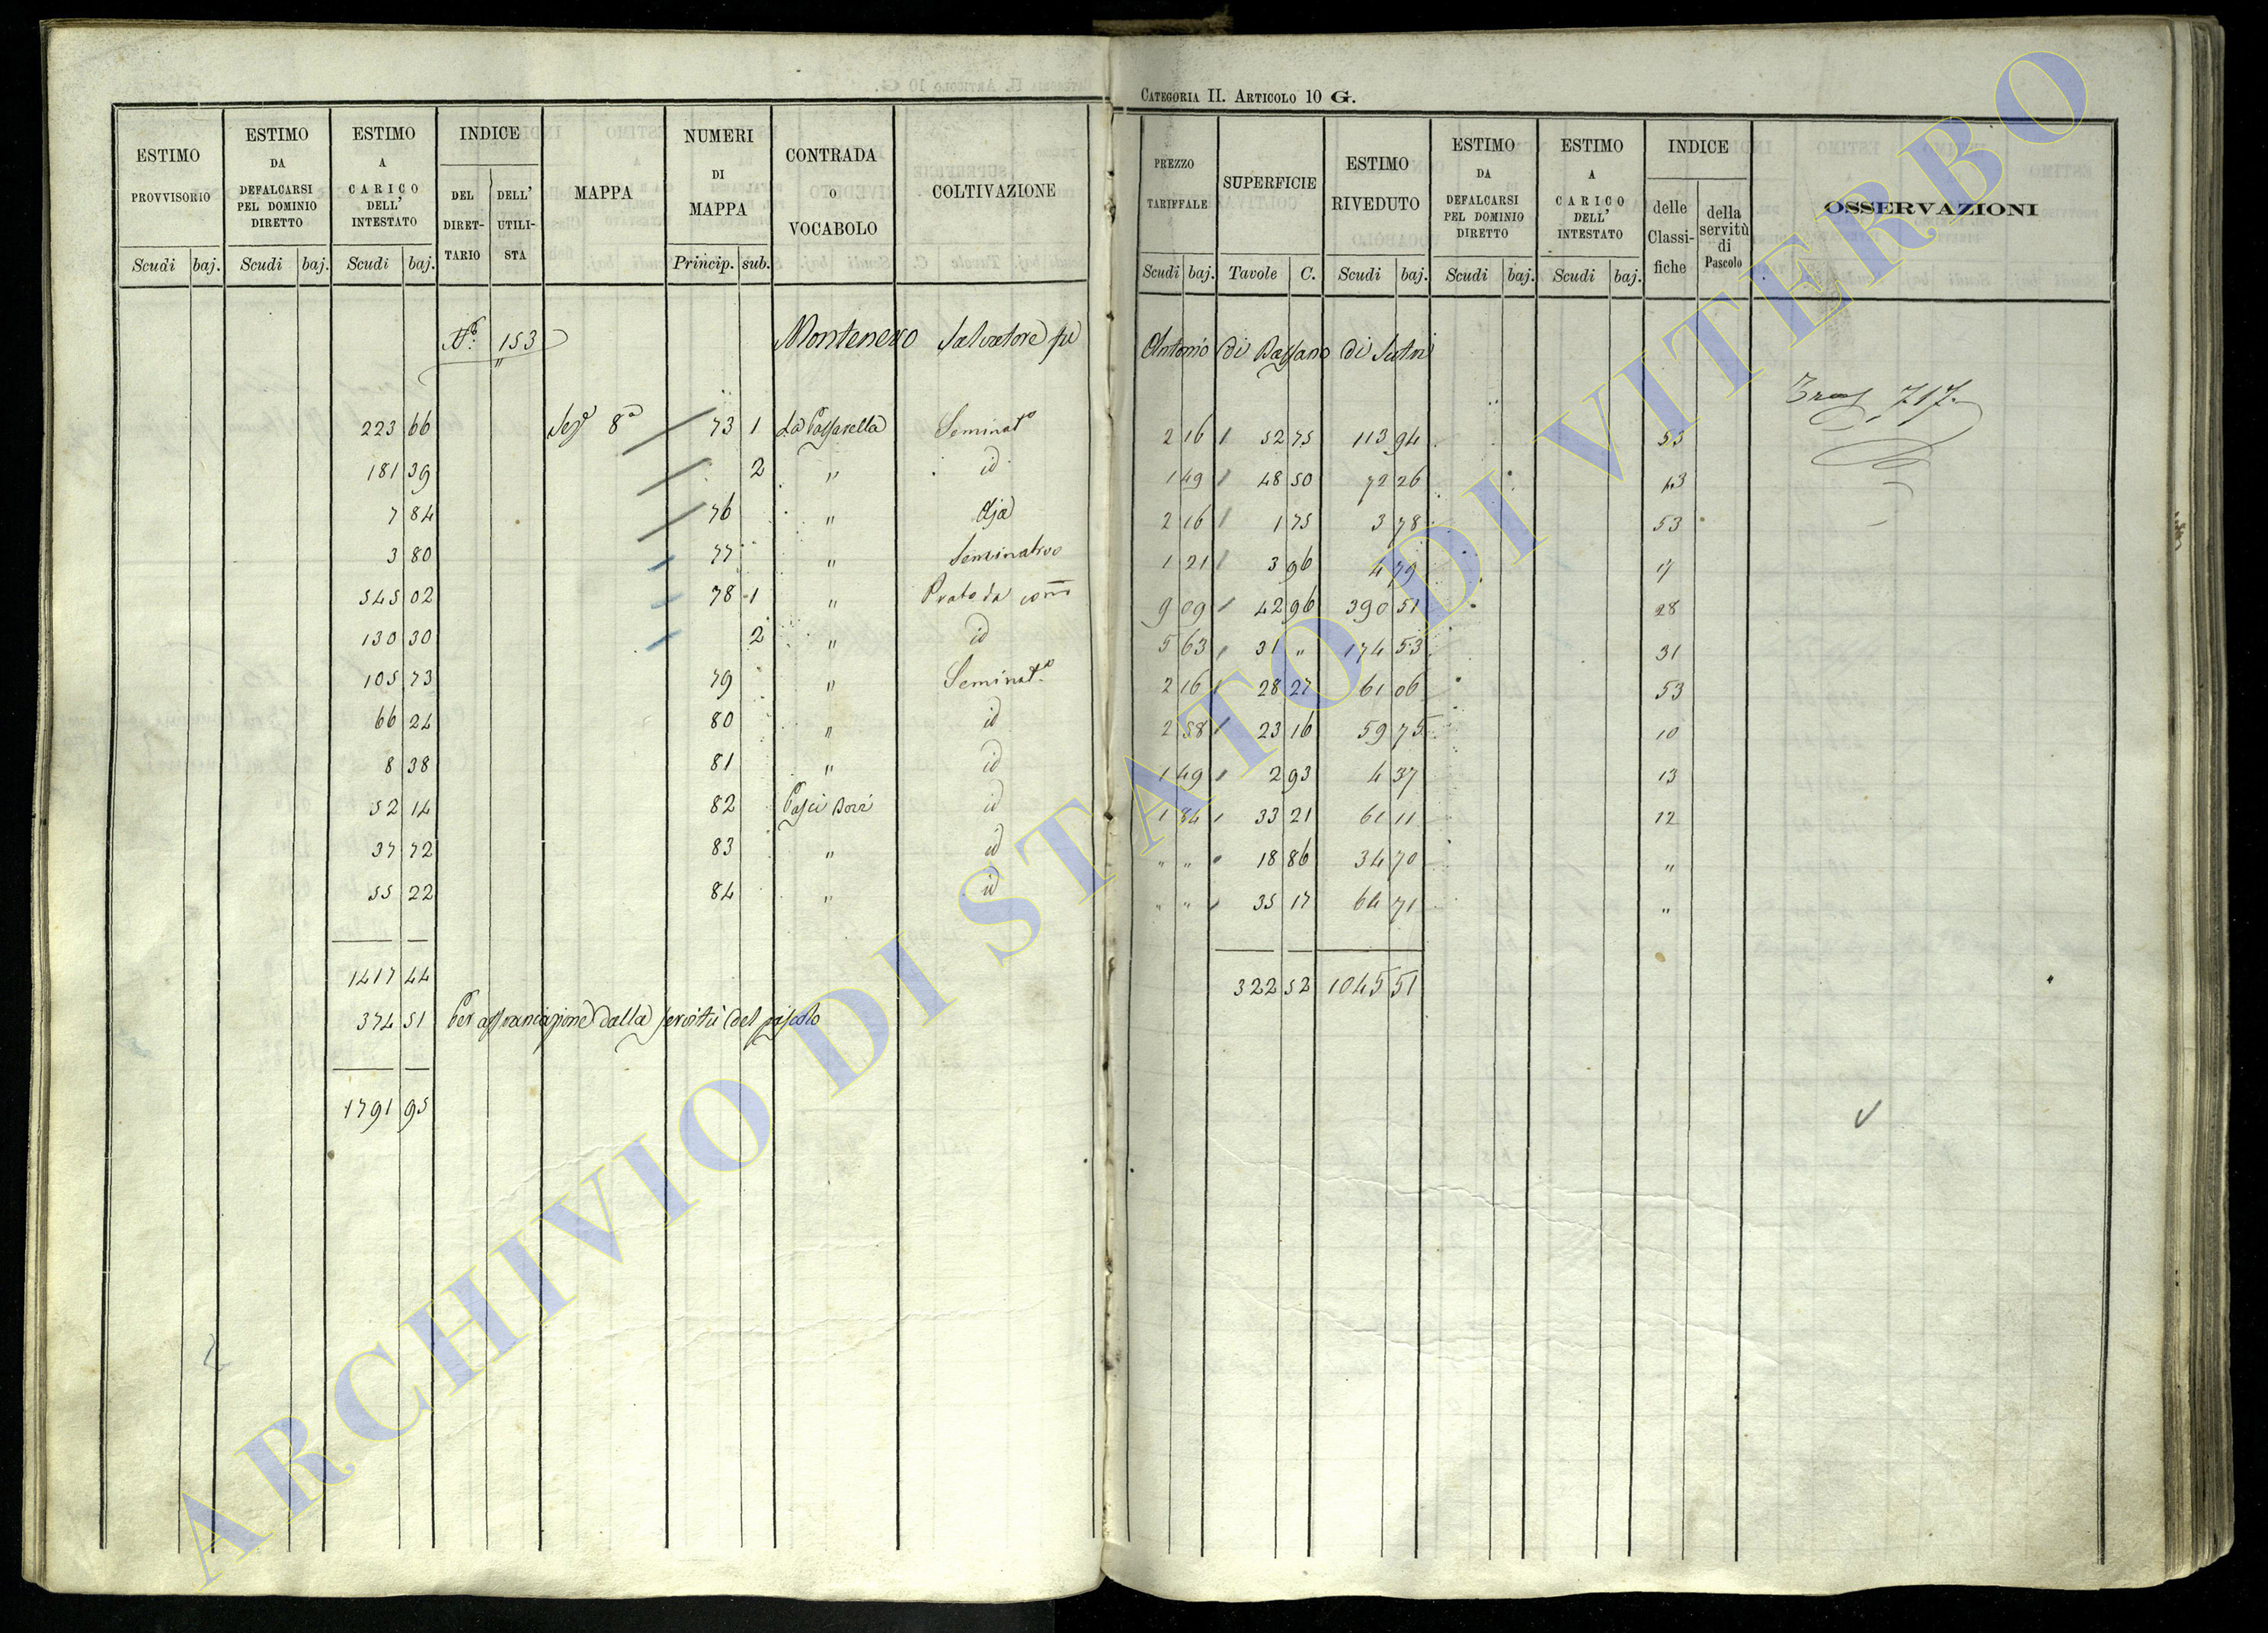 CATEGORIA II. ARTICOLO 10 G.
ESTIMO PROVVISORIO Scudi baj.
ESTIMO DA DEFALCARSI PEL DOMINIO DIRETTO Scudi baj.
ESTIMO A CARICO DELL' INTESTATO Scudi baj.
INDICE DEL DIRETTARIO DELL' UTILISTA
MAPPA
NUMERI DI MAPPA Princip. sub.
CONTRADA O VOCABOLO
COLTIVAZIONE
PREZZO TARIFFALE Scudi baj.
SUPERFICIE Tavole C.
ESTIMO RIVEDUTO Scudi baj.
ESTIMO DA DEFALCARSI PEL DOMINIO DIRETTO Scudi baj.
ESTIMO A CARICO DELL' INTESTATO Scudi baj.
INDICE delle Classifiche della servitù di Pascolo
OSSERVAZIONI
N.º 153 Montenero Salvatore fu Antonio di Bassano di Sutri
717
223 66 Sez.e 8a 73 1 Seminat.o 2 16 52 75 113 94 53
181 39 2 " id 1 49 48 50 72 26 13
7 84 76 " Aja 2 16 1 75 3 78 53
3 80 77 " Seminativo 1 21 3 96 4 79 17
545 02 78 1 " Prato da 9 09 42 96 390 51 28
130 30 2 " id 5 63 31 " 174 53 31
105 73 79 " Seminat.o 2 16 28 27 61 06 53
66 24 80 " id 2 58 23 16 59 75 10
8 38 81 " id 1 49 2 93 4 37 13
52 14 82 id 1 84 33 21 61 11 12
37 72 83 " id " " 18 86 34 70 "
55 22 84 " id " " 35 17 64 71 "
1417 44 322 52 1045 51
374 51 Per affrancazione dalla servitù del pascolo
1791 95
ARCHIVIO DI STATO DI VITERBO